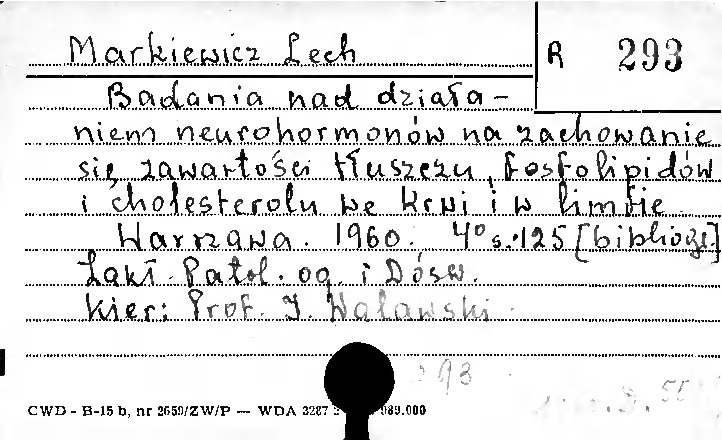 Markiewicz Lech
R 293
Badania nad działa-
niem neurohormonów na zachowanie
się zawartości tłuszczu, fosfolipidów
i cholesterolu we krwi i w limfie
Warszawa. 1960. 4° s. 125 [bibliogr.]
Zakł. Patol. og. i Dośw.
Kier: Prof. J. Walawski.
93
CWD - B-15 b, nr 2659/ZW/P — WDA 3287